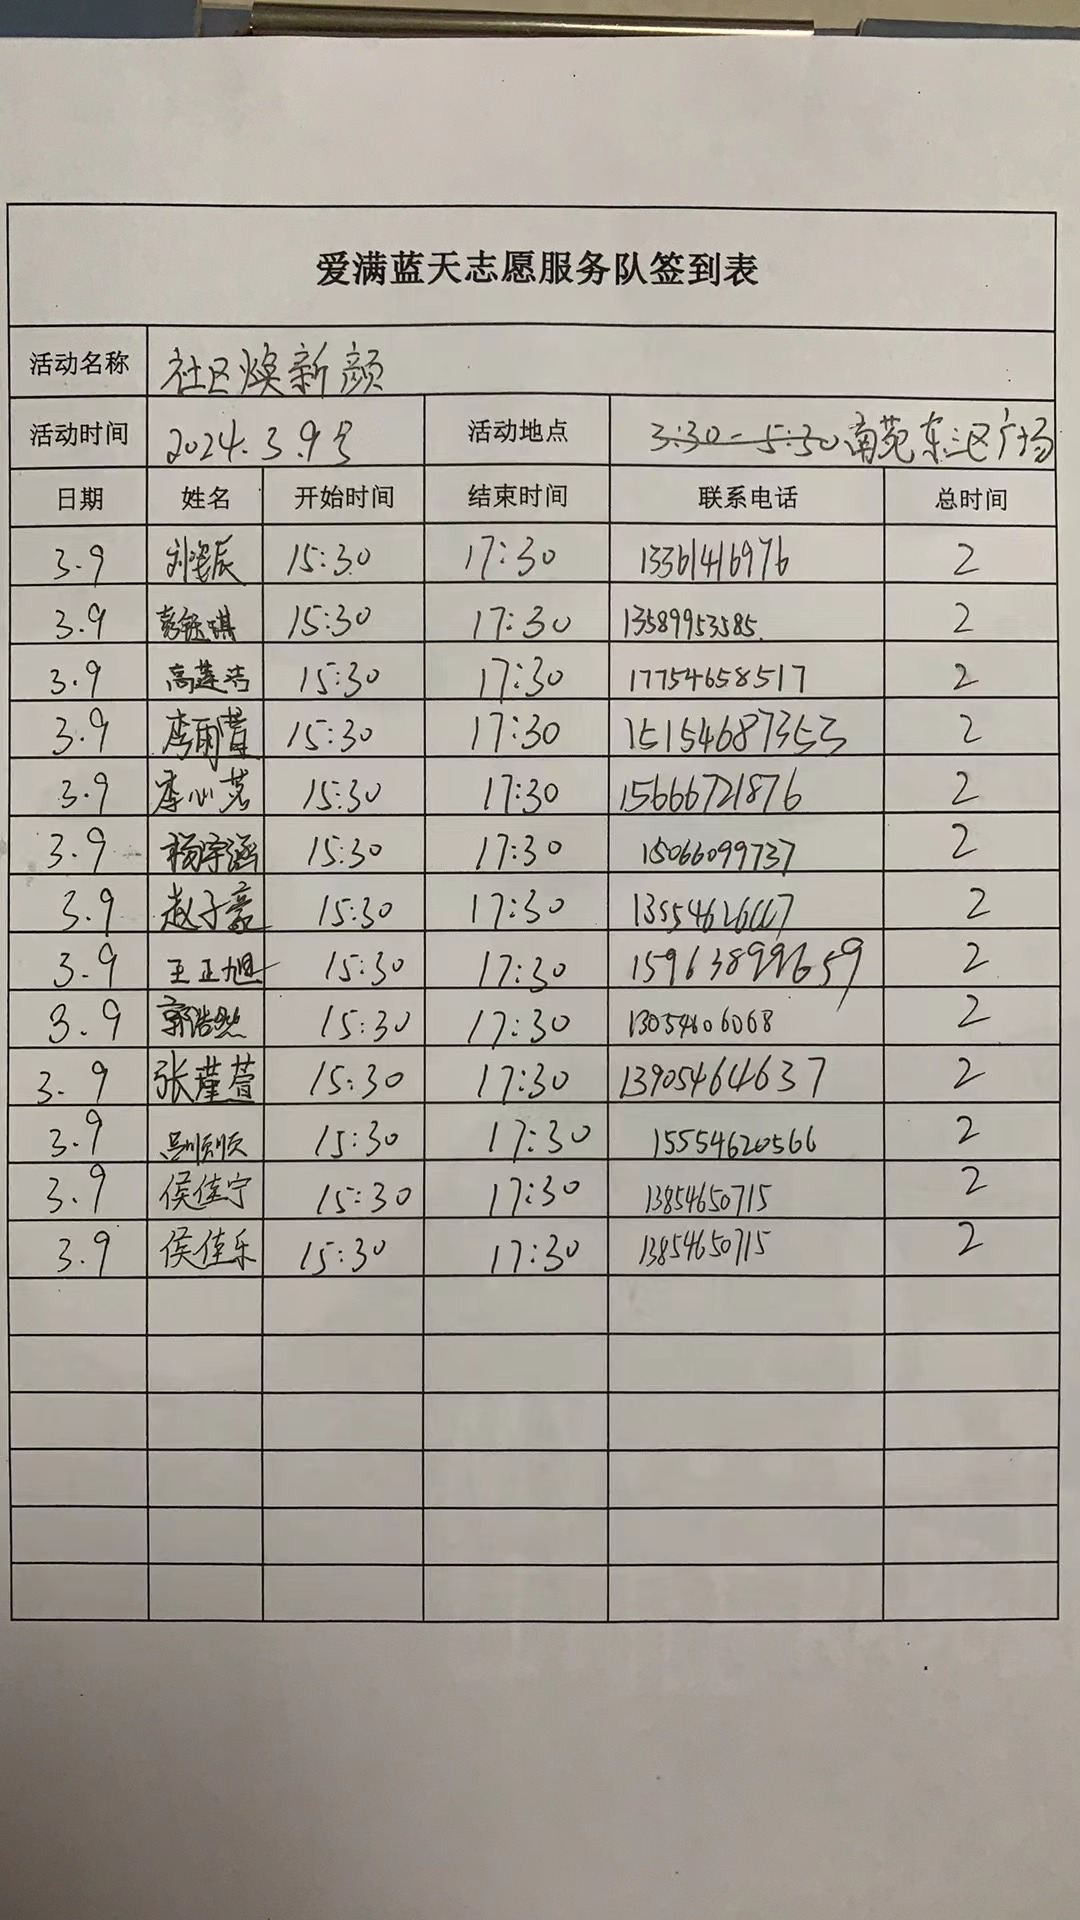 爱满蓝天志愿服务队签到表
活动名称 社区焕新颜
活动时间 2024.3.9号 活动地点 3:30-5:30 南苑东三区广场
日期 姓名 开始时间 结束时间 联系电话 总时间
3.9 15:30 17:30 13361416976 2
3.9 15:30 17:30 13589953585 2
3.9 高莲洁 15:30 17:30 17754658517 2
3.9 李雨萱 15:30 17:30 15154687353 2
3.9 李心茗 15:30 17:30 15666721876 2
3.9 杨宇涵 15:30 17:30 15066099737 2
3.9 赵子豪 15:30 17:30 2
3.9 王正旭 15:30 17:30 2
3.9 郭浩然 15:30 17:30 13054606068 2
3.9 张瑾萱 15:30 17:30 13905464637 2
3.9 吕顺顺 15:30 17:30 15554620566 2
3.9 侯佳宁 15:30 17:30 13854650715 2
3.9 侯佳乐 15:30 17:30 13854650715 2